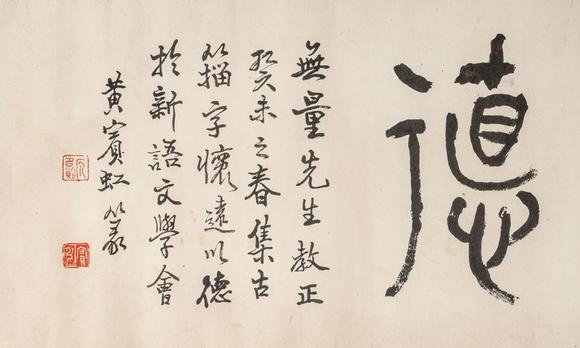 德
無量先生教正
癸未之春集古
籀字懷遠以德
於新語文學會
黃賓虹篆